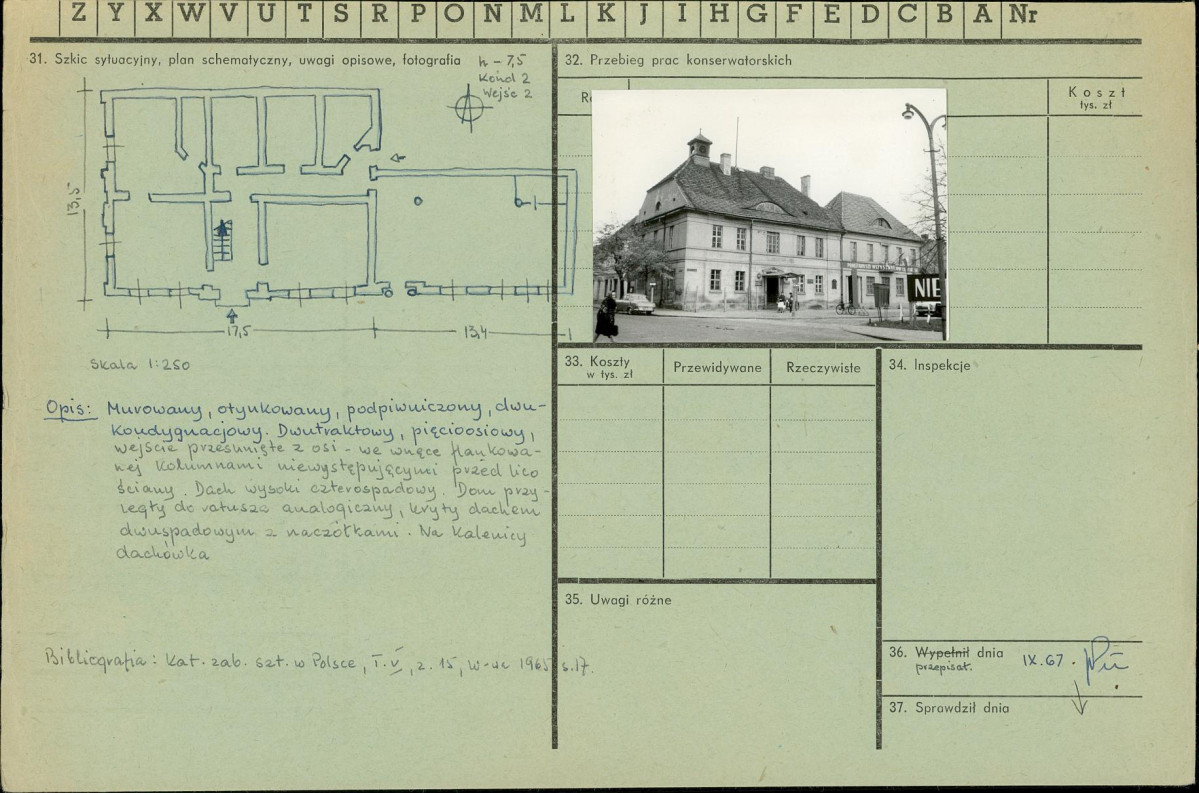 Z Y X W V U T S R P O N M L K J I H G F E D C B A Nr
31. Szkic sytuacyjny, plan schematyczny, uwagi opisowe, fotografia
h - 7,5
Kond 2
Wejść 2
13,5
17,5
13,4
Skala 1:250
Opis: Murowany, otynkowany, podpiwniczony, dwu-
kondygnacjowy. Dwutraktowy, pięcioosiowy,
wejście przesunięte z osi - we wnęce flankowa-
nej kolumnami niewystępującymi przed lico
ściany. Dach wysoki czterospadowy. Dom przy-
legły do ratusza analogiczny, kryty dachem
dwuspadowym z naczółkami. Na kalenicy
dachówka
Bibliografia: Kat. zab. szt. w Polsce, T. V, z. 15, W-wa 1965 s.17.
32. Przebieg prac konserwatorskich
Koszt
tys. zł
NIE
33. Koszty
w tys. zł
Przewidywane
Rzeczywiste
34. Inspekcje
35. Uwagi różne
36. Wypełnił dnia
przepisał.
IX.67.
37. Sprawdził dnia